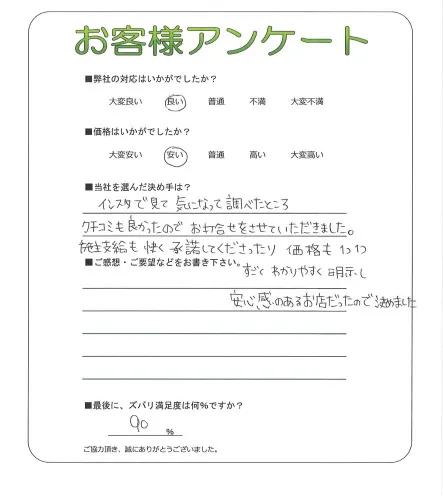 お客様アンケート
■弊社の対応はいかがでしたか?
大変良い 良い 普通 不満 大変不満
■価格はいかがでしたか?
大変安い 安い 普通 高い 大変高い
■当社を選んだ決め手は?
インスタで見て 気になって 調べたところ
クチコミも良かったので お問合せをさせていただきました。
施主支給も 快く 承諾してくださったり 価格も 1つ1つ
■ご感想・ご要望などをお書き下さい。
すごく わかりやすく 明示し
安心感のあるお店だったので 決めました
■最後に、ズバリ満足度は何%ですか?
90 %
ご協力頂き、誠にありがとうございました。